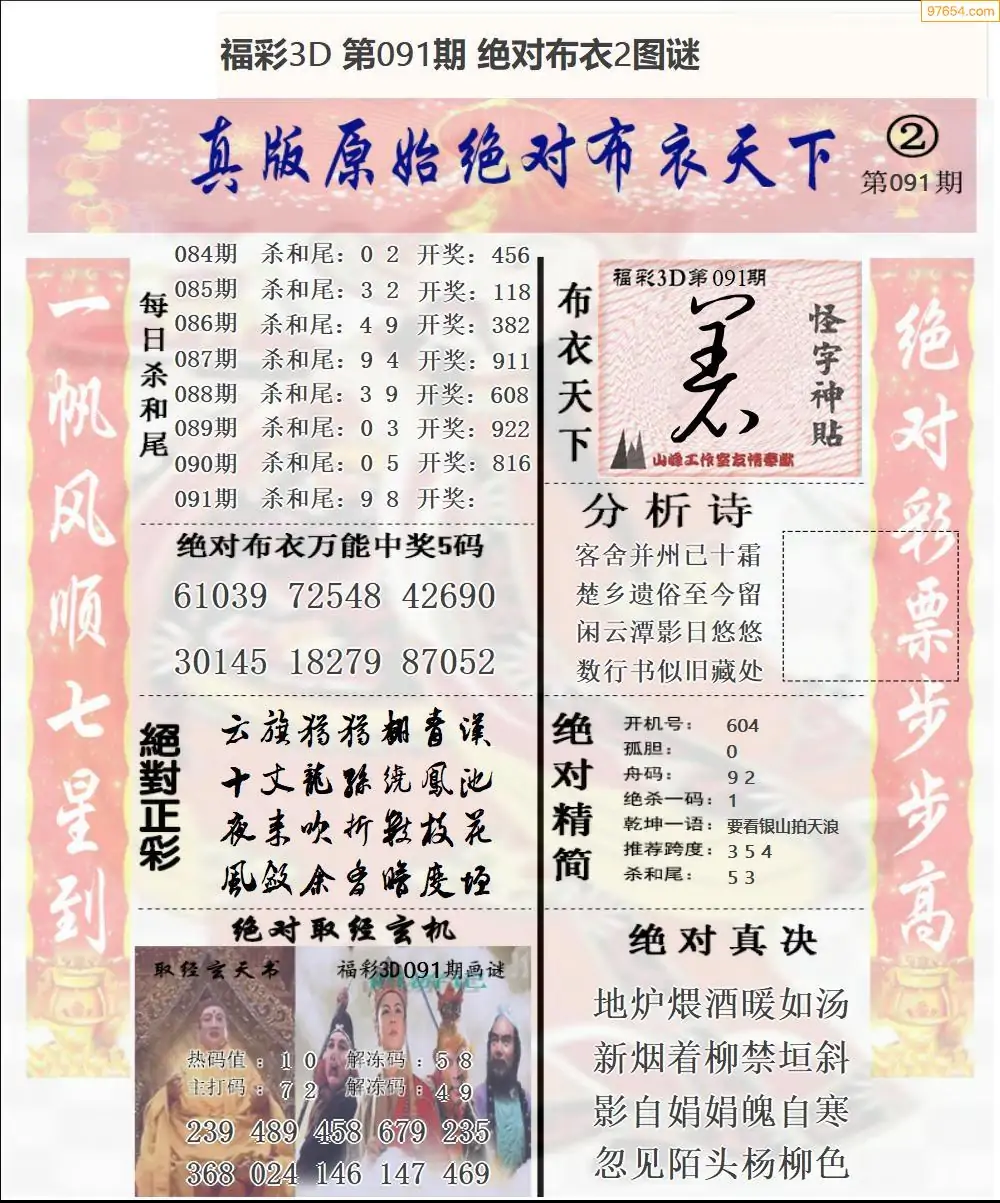 97654.com
福彩3D 第091期 绝对布衣2图谜
真版原始绝对布衣天下
②
第091期
一帆风顺七星到
每日杀和尾
084期 杀和尾：0 2 开奖：456
085期 杀和尾：3 2 开奖：118
086期 杀和尾：4 9 开奖：382
087期 杀和尾：9 4 开奖：911
088期 杀和尾：3 9 开奖：608
089期 杀和尾：0 3 开奖：922
090期 杀和尾：0 5 开奖：816
091期 杀和尾：9 8 开奖：
绝对布衣万能中奖5码
61039 72548 42690
30145 18279 87052
絕對正彩
云旗猎猎翻青汉
十丈龍孙绕鳳池
夜来吹折数枝花
風敛余香暗度垣
绝对取经玄机
取经玄天书
福彩3D091期画谜
热码值：1 0 解冻码：5 8
主打码：7 2 解冻码：4 9
239 489 458 679 235
368 024 146 147 469
布衣天下
福彩3D第091期
怪字神貼
山峰工作室友情奉献
分析诗
客舍并州已十霜
楚乡遗俗至今留
闲云潭影日悠悠
数行书似旧藏处
绝对精简
开机号：604
孤胆：0
舟码：9 2
绝杀一码：1
乾坤一语：要看银山拍天浪
推荐跨度：3 5 4
杀和尾：5 3
绝对真决
地炉煨酒暖如汤
新烟着柳禁垣斜
影自娟娟魄自寒
忽见陌头杨柳色
绝对彩票步步高